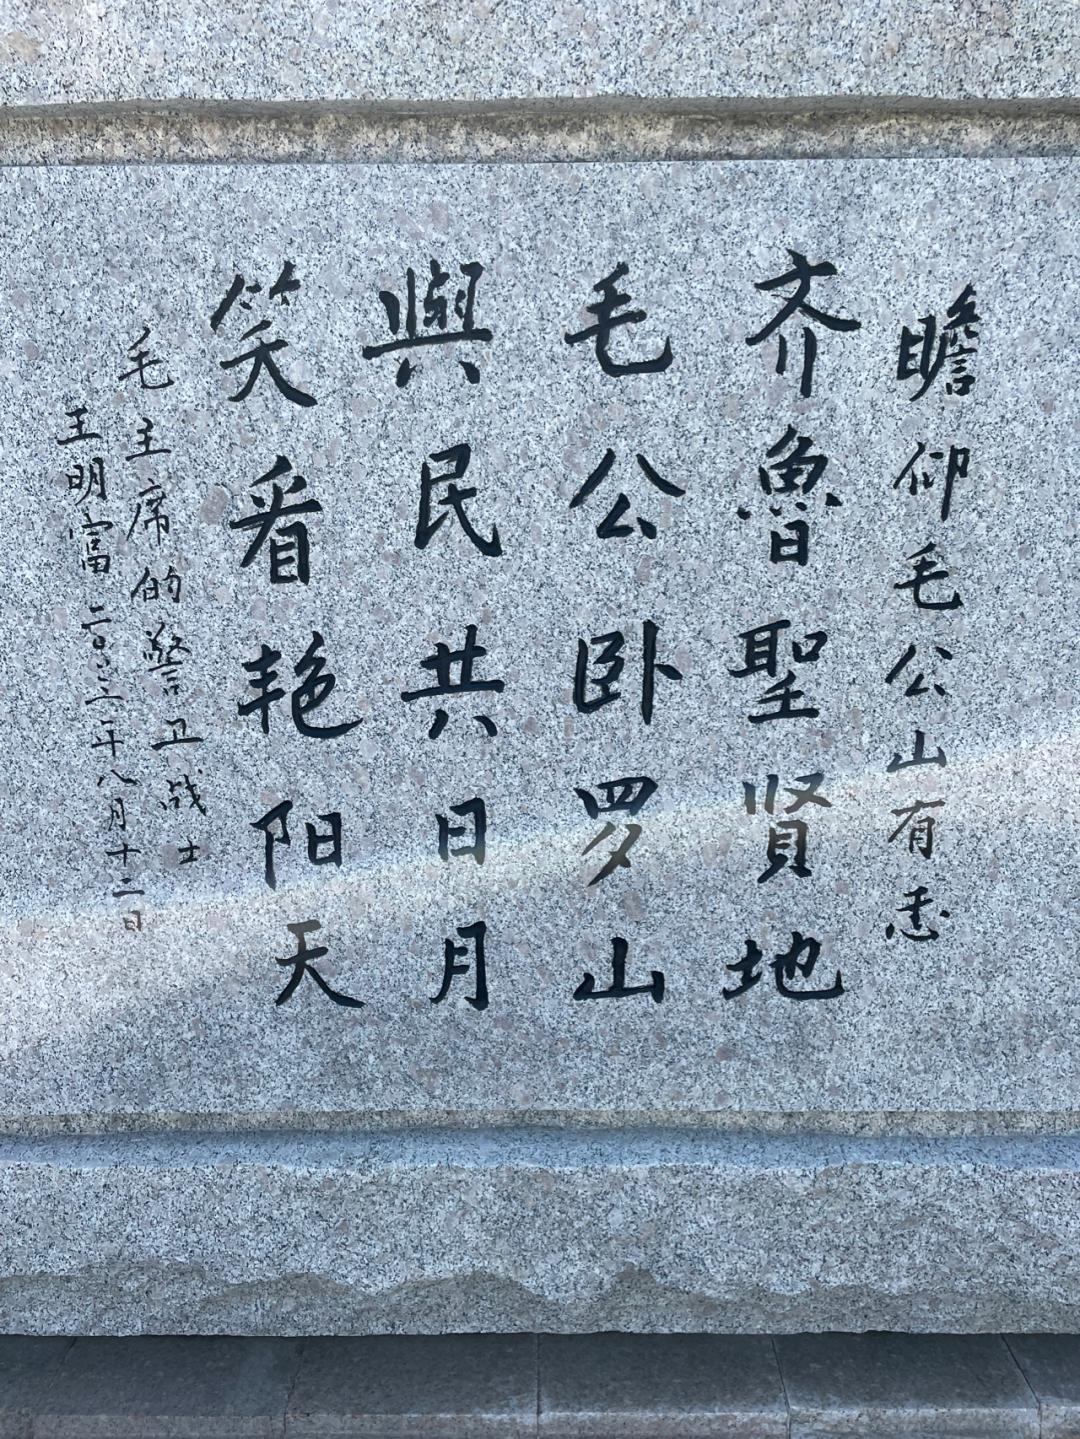 瞻仰毛公山有悉
齐魯聖賢地
毛公卧罗山
與民共日月
笑看艳阳天
毛主席的警卫战士
王明富二〇〇三年八月十二日